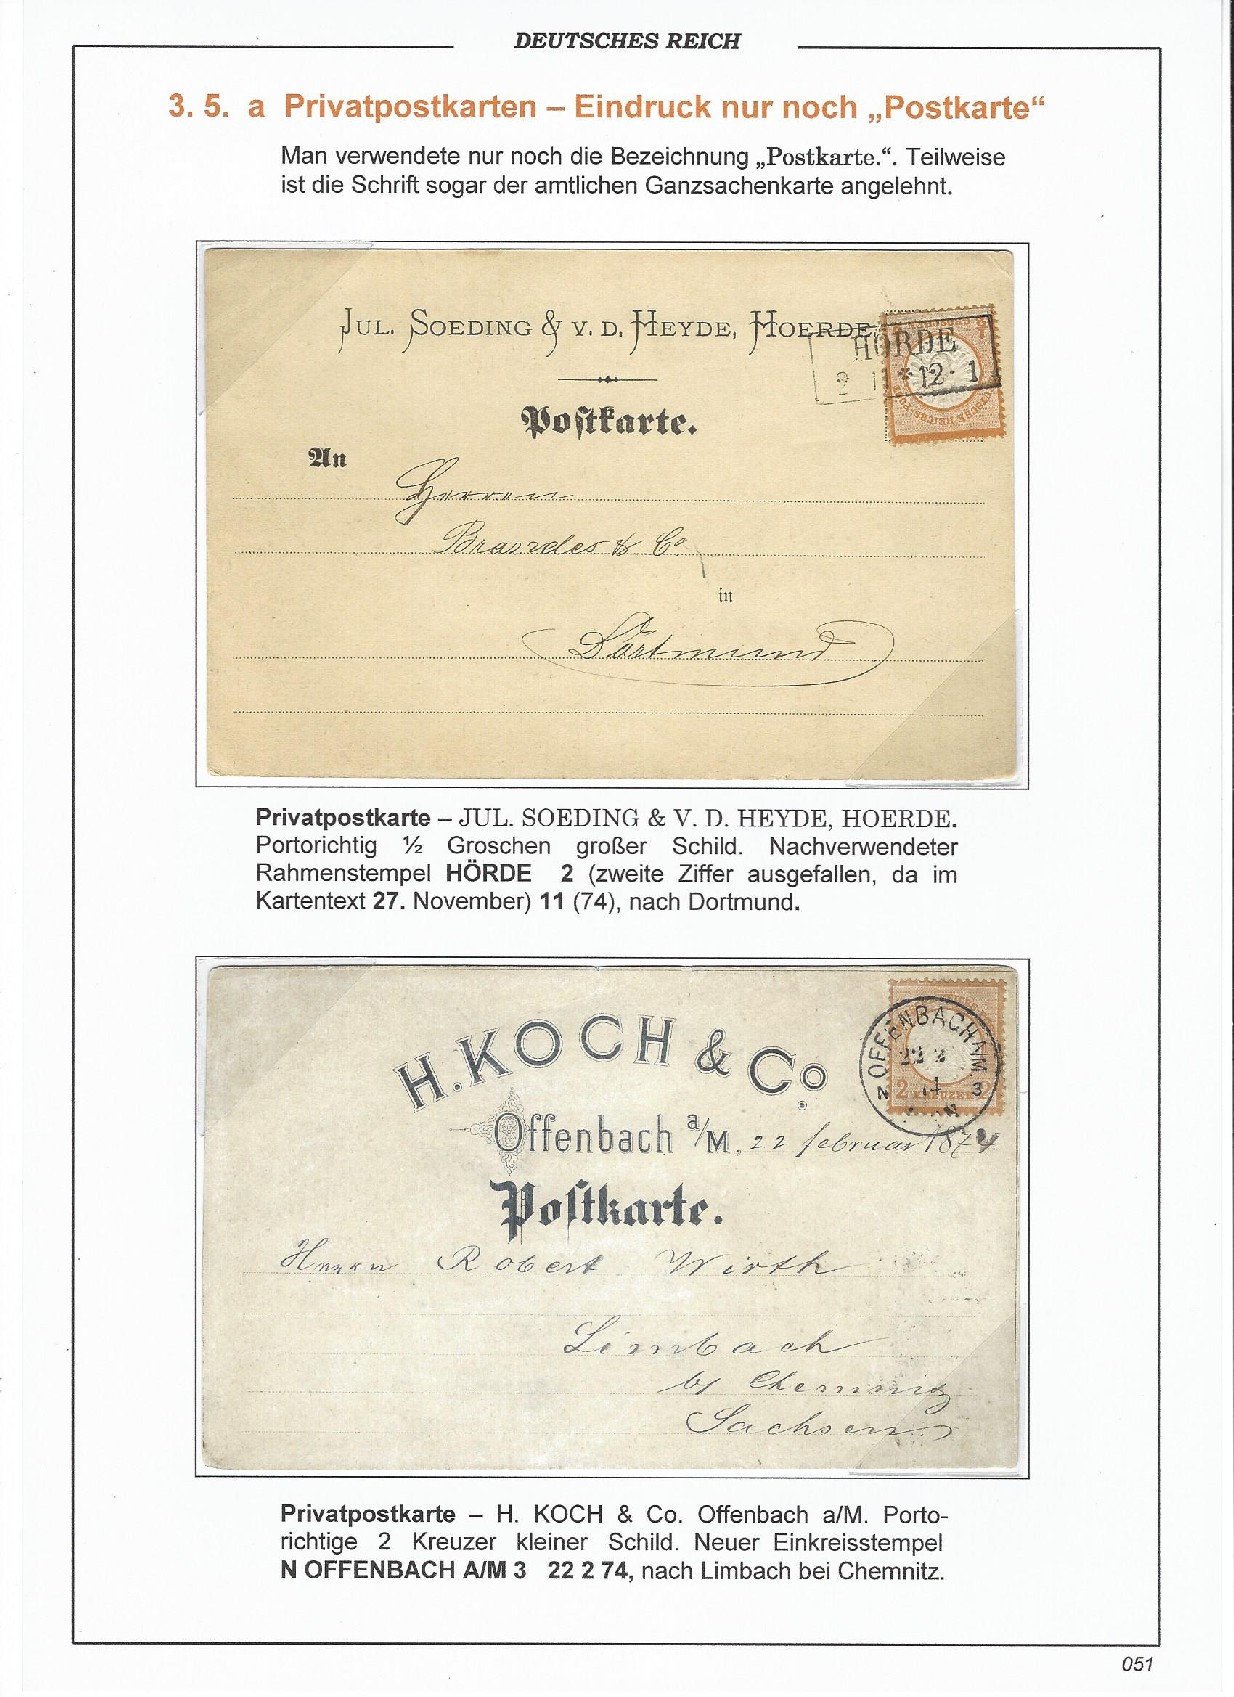 DEUTSCHES REICH
3. 5. a Privatpostkarten – Eindruck nur noch „Postkarte“
Man verwendete nur noch die Bezeichnung „Postkarte.“. Teilweise
ist die Schrift sogar der amtlichen Ganzsachenkarte angelehnt.
JUL. SOEDING & V. D. HEYDE, HOERDE.
HÖRDE
2 11 * 12 - 1
Postkarte.
An
Herren
Brandes & Co
in
Dortmund
Privatpostkarte – JUL. SOEDING & V. D. HEYDE, HOERDE.
Portorichtig ½ Groschen großer Schild. Nachverwendeter
Rahmenstempel HÖRDE 2 (zweite Ziffer ausgefallen, da im
Kartentext 27. November) 11 (74), nach Dortmund.
H. KOCH & Co.
OFFENBACH A/M
22 2
N 3
2 KREUZER 2
Offenbach a/M, 22 februar 1874
Postkarte.
Herrn Robert Wirth
Limbach
b/ Chemnitz
Sachsen
Privatpostkarte – H. KOCH & Co. Offenbach a/M. Porto-
richtige 2 Kreuzer kleiner Schild. Neuer Einkreisstempel
N OFFENBACH A/M 3 22 2 74, nach Limbach bei Chemnitz.
051